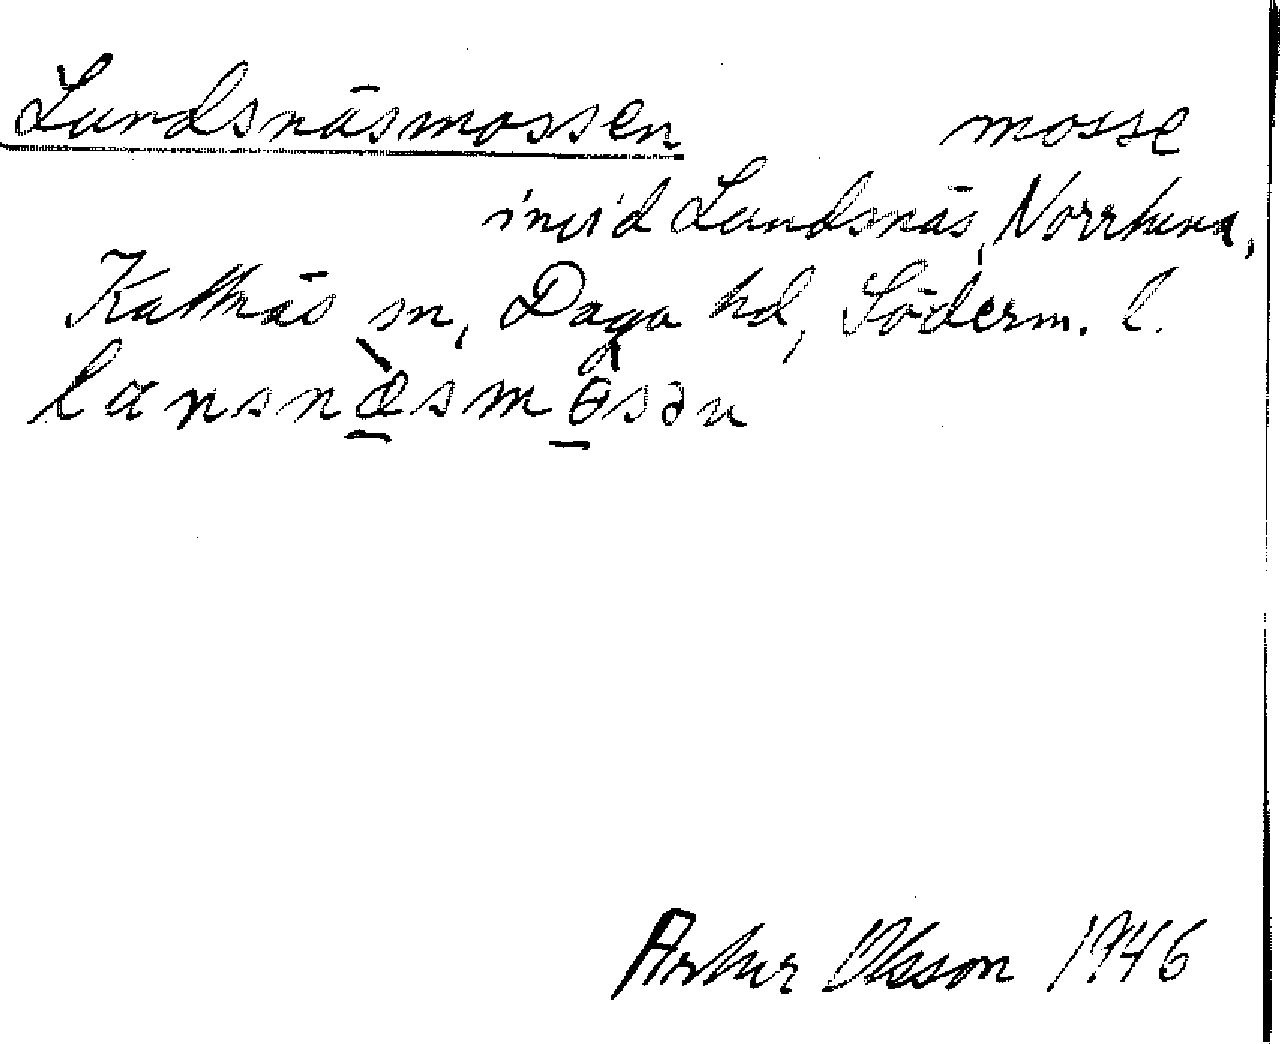 Lundsnäsmossen mosse
invid Lundsnäs, Norrtuna,
Kattnäs sn, Daga hd, Söderm. l.
lansnæ̀smɵ̂sən
Arthur Olsson 1946